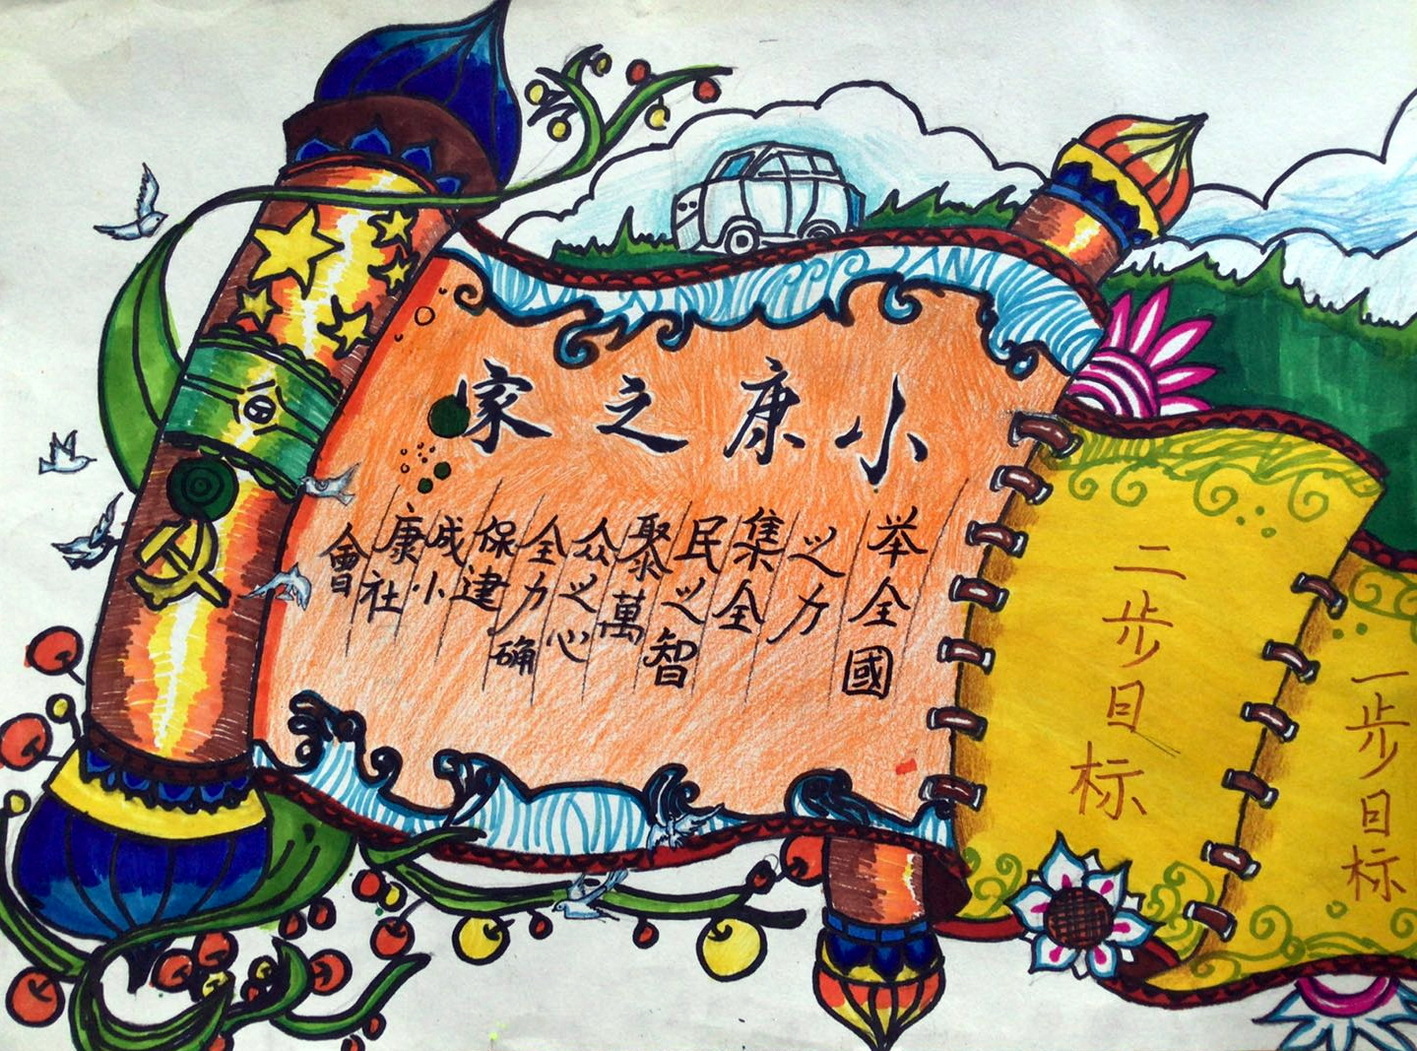 小康之家
举全國
之力
集全
民之智
聚萬
众之心
全力确
保建
成小
康社
會
二步目标
一步目标